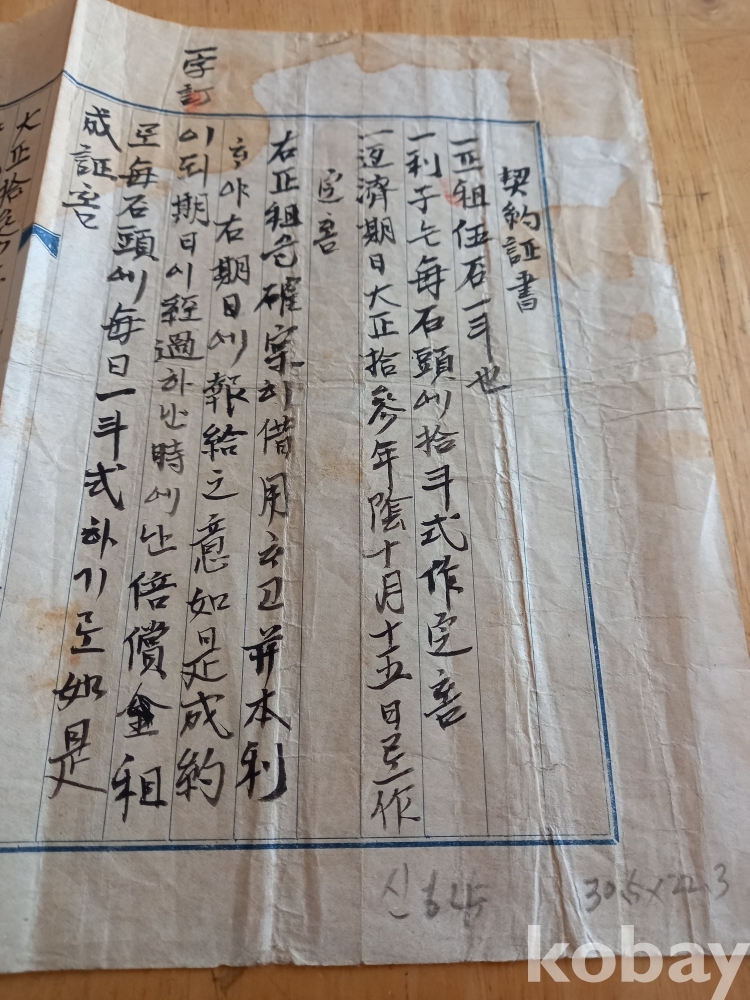 契約証書
一正租伍石一斗也
一利子는每石頭에拾斗式作定홈
一返濟期日大正拾參年陰十月十五日로作
定홈
右正租를確實히借用하고并本利
하야右期日에報給之意如是成約
이되期日이經過하난時에난倍償金租
로每石頭에每日一斗式하기로如是
成証홈
一字訂
大正拾
신
30.5×22.3
kobay